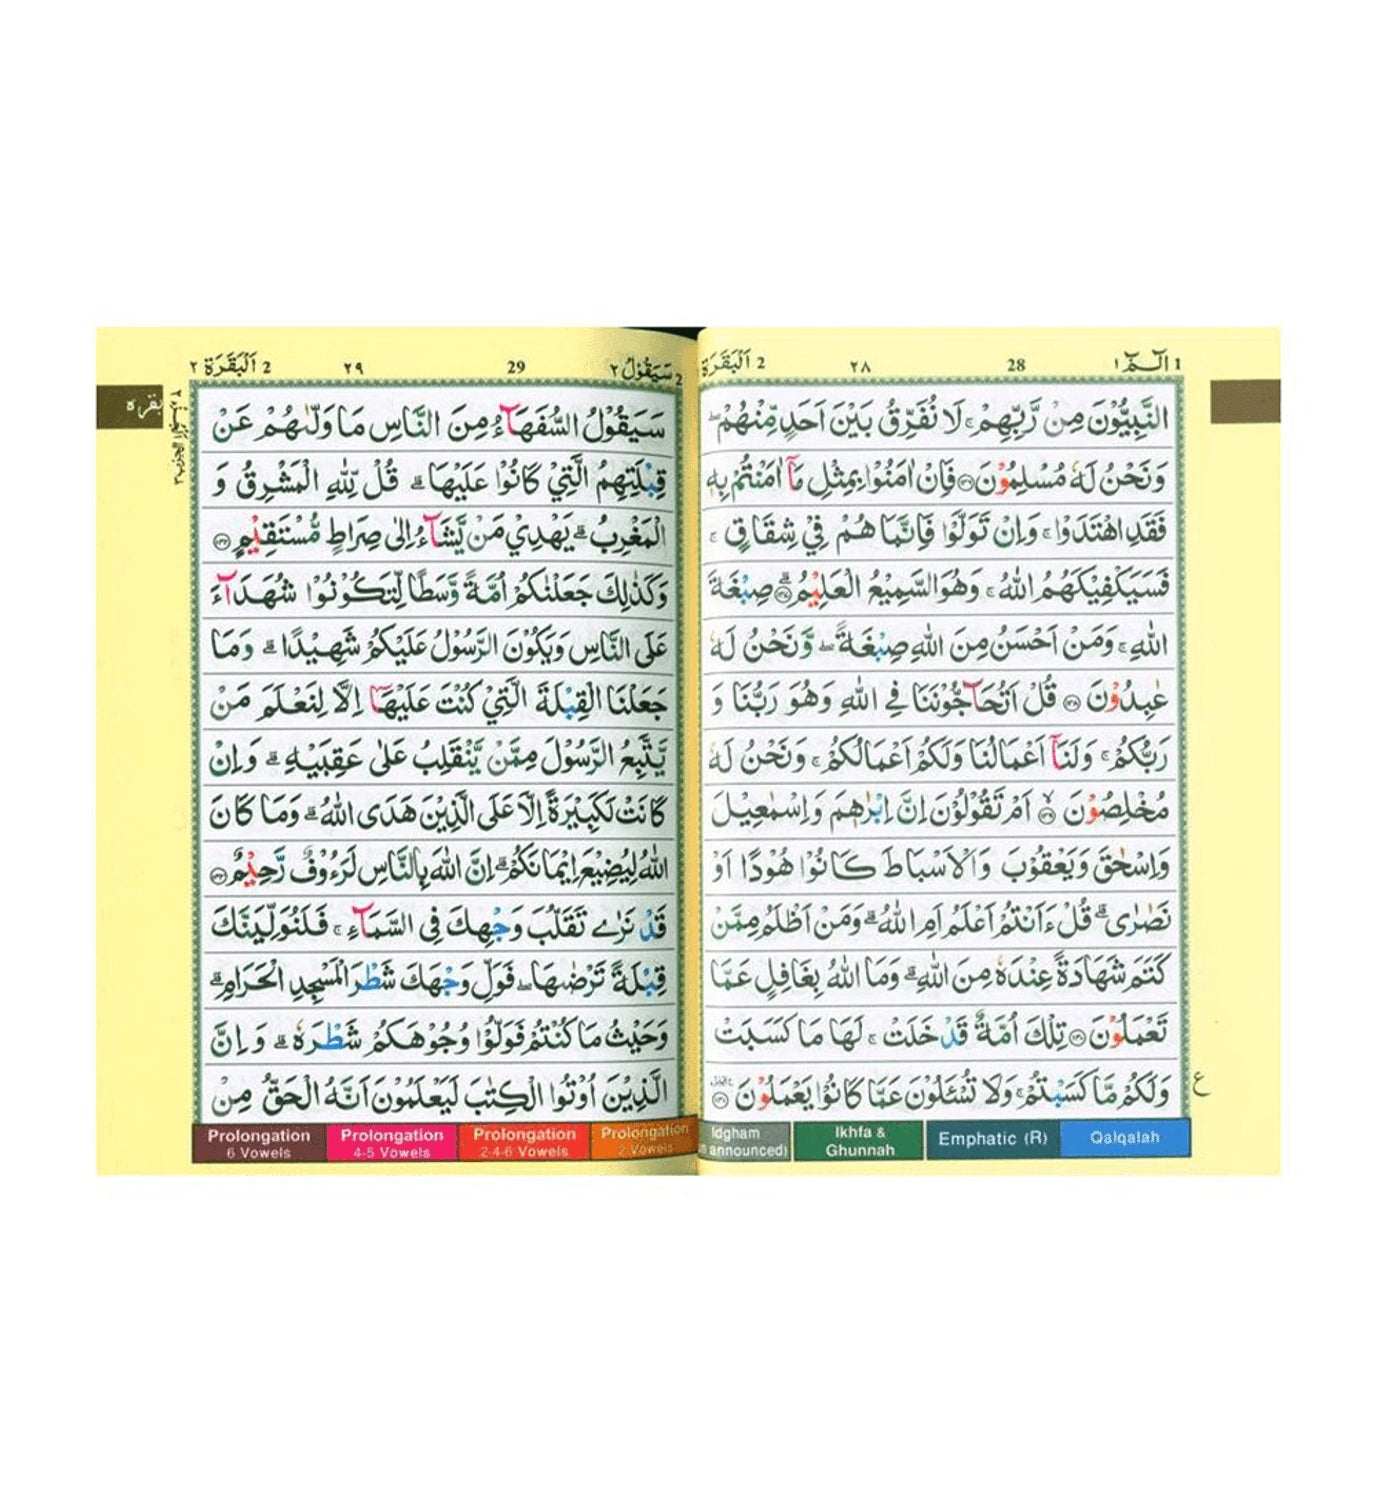 1 الٓـمّٓ ١
28
٢٨
2 اَلْبَقَرَة
النَّبِيُّوْنَ مِنْ رَّبِّهِمْ ۚ لَا نُفَرِّقُ بَيْنَ اَحَدٍ مِّنْهُمْ ۖ
وَنَحْنُ لَهٗ مُسْلِمُوْنَ ۝١٣٦ فَاِنْ اٰمَنُوْا بِمِثْلِ مَاۤ اٰمَنْتُمْ بِهٖ
فَقَدِ اهْتَدَوْا ۚ وَاِنْ تَوَلَّوْا فَاِنَّمَا هُمْ فِيْ شِقَاقٍ ۚ
فَسَيَكْفِيْكَهُمُ اللّٰهُ ۚ وَهُوَ السَّمِيْعُ الْعَلِيْمُ ۝١٣٧ صِبْغَةَ
اللّٰهِ ۚ وَمَنْ اَحْسَنُ مِنَ اللّٰهِ صِبْغَةً ۖ وَّنَحْنُ لَهٗ
عٰبِدُوْنَ ۝١٣٨ قُلْ اَتُحَاۤجُّوْنَنَا فِي اللّٰهِ وَهُوَ رَبُّنَا وَ
رَبُّكُمْ ۚ وَلَنَاۤ اَعْمَالُنَا وَلَكُمْ اَعْمَالُكُمْ ۚ وَنَحْنُ لَهٗ
مُخْلِصُوْنَ ۝١٣٩ اَمْ تَقُوْلُوْنَ اِنَّ اِبْرٰهٖمَ وَاِسْمٰعِيْلَ
وَاِسْحٰقَ وَيَعْقُوْبَ وَالْاَسْبَاطَ كَانُوْا هُوْدًا اَوْ
نَصٰرٰى ۗ قُلْ ءَاَنْتُمْ اَعْلَمُ اَمِ اللّٰهُ ۗ وَمَنْ اَظْلَمُ مِمَّنْ
كَتَمَ شَهَادَةً عِنْدَهٗ مِنَ اللّٰهِ ۗ وَمَا اللّٰهُ بِغَافِلٍ عَمَّا
تَعْمَلُوْنَ ۝١٤٠ تِلْكَ اُمَّةٌ قَدْ خَلَتْ ۚ لَهَا مَا كَسَبَتْ
وَلَكُمْ مَّا كَسَبْتُمْ ۚ وَلَا تُسْئَلُوْنَ عَمَّا كَانُوْا يَعْمَلُوْنَ ۝١٤١
ع
Idgham
announced)
Ikhfa &
Ghunnah
Emphatic (R)
Qalqalah
2 سَيَقُوْلُ ٢
29
٢٩
2 اَلْبَقَرَة ٢
بقره
سَيَقُوْلُ السُّفَهَاۤءُ مِنَ النَّاسِ مَا وَلّٰىهُمْ عَنْ
قِبْلَتِهِمُ الَّتِيْ كَانُوْا عَلَيْهَا ۗ قُلْ لِّلّٰهِ الْمَشْرِقُ وَ
الْمَغْرِبُ ۗ يَهْدِيْ مَنْ يَّشَاۤءُ اِلٰى صِرَاطٍ مُّسْتَقِيْمٍ ۝١٤٢
وَكَذٰلِكَ جَعَلْنٰكُمْ اُمَّةً وَّسَطًا لِّتَكُوْنُوْا شُهَدَاۤءَ
عَلَى النَّاسِ وَيَكُوْنَ الرَّسُوْلُ عَلَيْكُمْ شَهِيْدًا ۗ وَمَا
جَعَلْنَا الْقِبْلَةَ الَّتِيْ كُنْتَ عَلَيْهَاۤ اِلَّا لِنَعْلَمَ مَنْ
يَّتَّبِعُ الرَّسُوْلَ مِمَّنْ يَّنْقَلِبُ عَلٰى عَقِبَيْهِ ۗ وَاِنْ
كَانَتْ لَكَبِيْرَةً اِلَّا عَلَى الَّذِيْنَ هَدَى اللّٰهُ ۗ وَمَا كَانَ
اللّٰهُ لِيُضِيْعَ اِيْمَانَكُمْ ۗ اِنَّ اللّٰهَ بِالنَّاسِ لَرَءُوْفٌ رَّحِيْمٌ ۝١٤٣
قَدْ نَرٰى تَقَلُّبَ وَجْهِكَ فِي السَّمَاۤءِ ۚ فَلَنُوَلِّيَنَّكَ
قِبْلَةً تَرْضٰىهَا ۖ فَوَلِّ وَجْهَكَ شَطْرَ الْمَسْجِدِ الْحَرَامِ ۗ
وَحَيْثُ مَا كُنْتُمْ فَوَلُّوْا وُجُوْهَكُمْ شَطْرَهٗ ۗ وَاِنَّ
الَّذِيْنَ اُوْتُوا الْكِتٰبَ لَيَعْلَمُوْنَ اَنَّهُ الْحَقُّ مِنْ
Prolongation
6 Vowels
Prolongation
4-5 Vowels
Prolongation
2-4-6 Vowels
Prolongation
2 Vowels